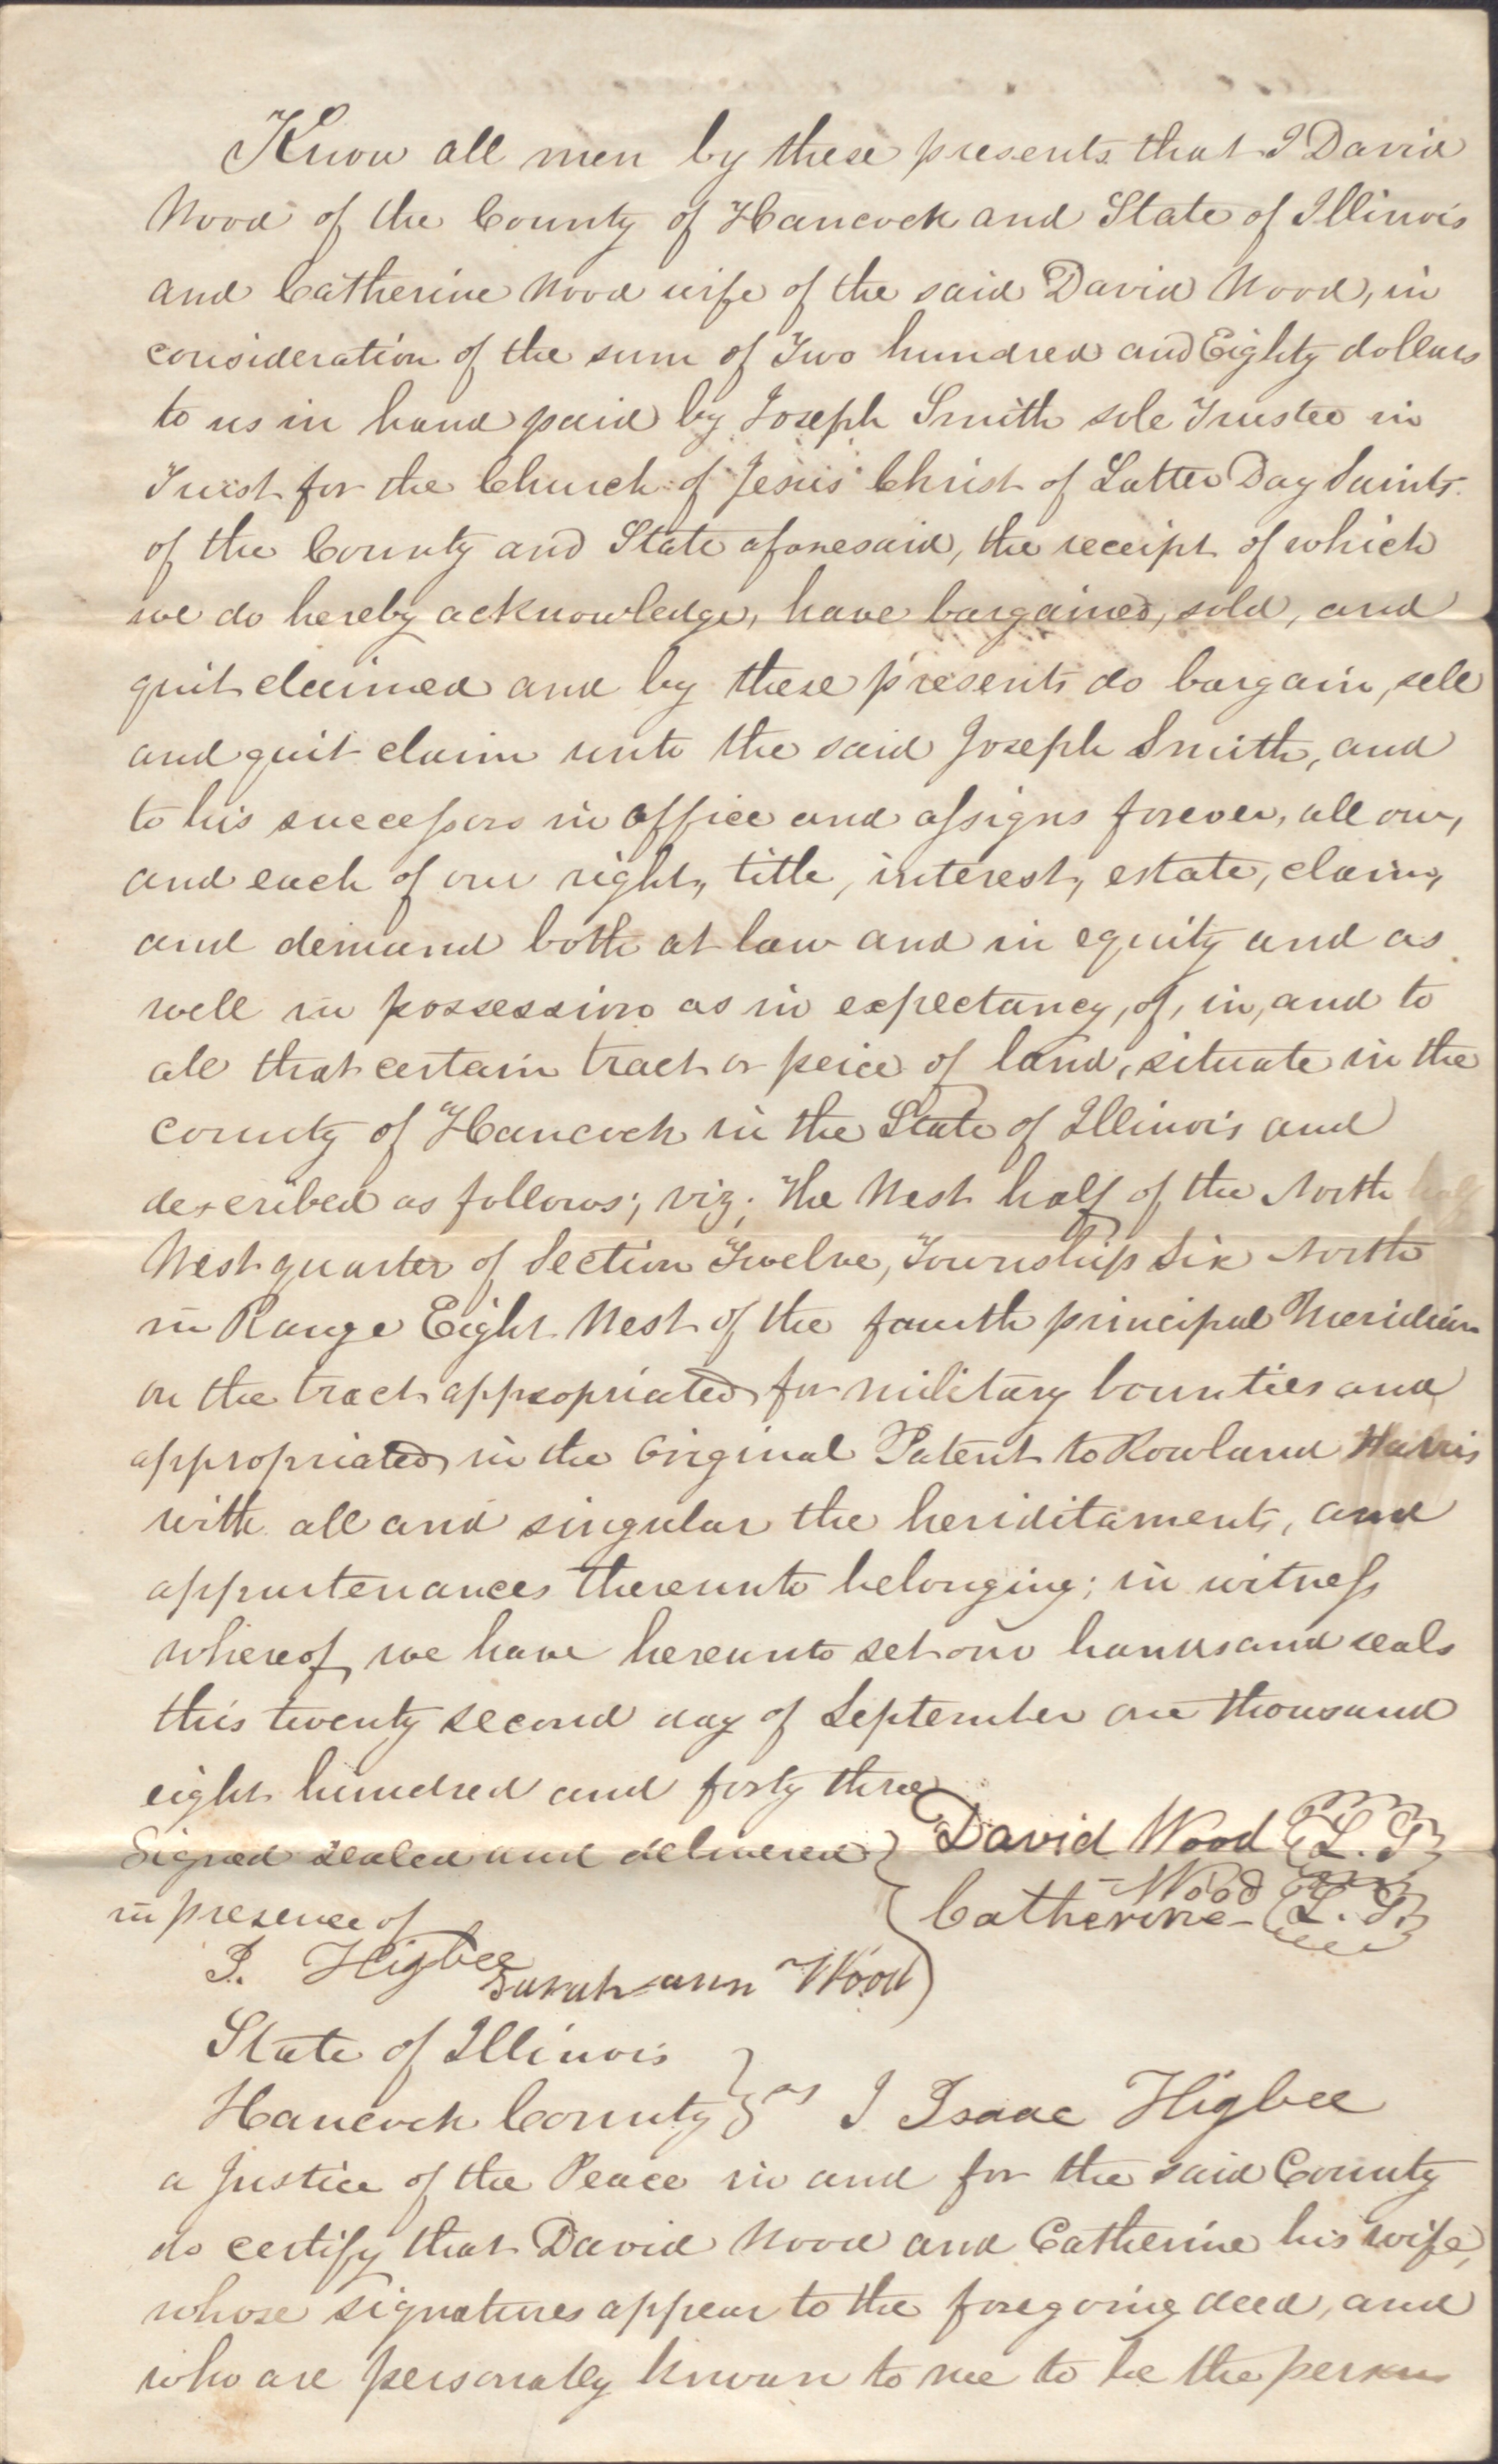 Know all men by these presents that I David
Wood of the County of Hancock and State of Illinois
and Catherine Wood wife of the said David Wood, in
consideration of the sum of Two hundred and Eighty dollars
to us in hand paid by Joseph Smith sole Trustee in
Trust for the Church of Jesus Christ of Latter Day Saints
of the County and State aforesaid, the receipt of which
we do hereby acknowledge, have bargained, sold, and
quit claimed and by these presents do bargain, sell
and quit claim unto the said Joseph Smith, and
to his successors in office and assigns forever, all our,
and each of our right, title, interest, estate, claim,
and demand both at law and in equity and as
well in possession as in expectancy, of, in, and to
all that certain tract or peice of land, situate in the
county of Hancock in the State of Illinois and
described as follows; viz; The West half of the North half
West quarter of Section Twelve, Township Six North
in Range Eight West of the fourth principal Meridian
on the tract appropriated for military bounties and
appropriated in the Original Patent to Rowland Harris
with all and singular the heriditaments, and
appurtenances thereunto belonging; in witness
whereof, we have hereunto set our hands and seals
this twenty second day of September one thousand
eight hundred and forty three
Signed sealed and delivered } David Wood (L.S)
in presence of Catherine Wood (L.S)
I. Higbee Sarah ann Wood
State of Illinois
Hancock County } ss I Isaac Higbee
a Justice of the Peace in and for the said County
do certify that David Wood and Catherine his wife,
whose signatures appear to the foregoing deed, and
who are personally known to me to be the persons